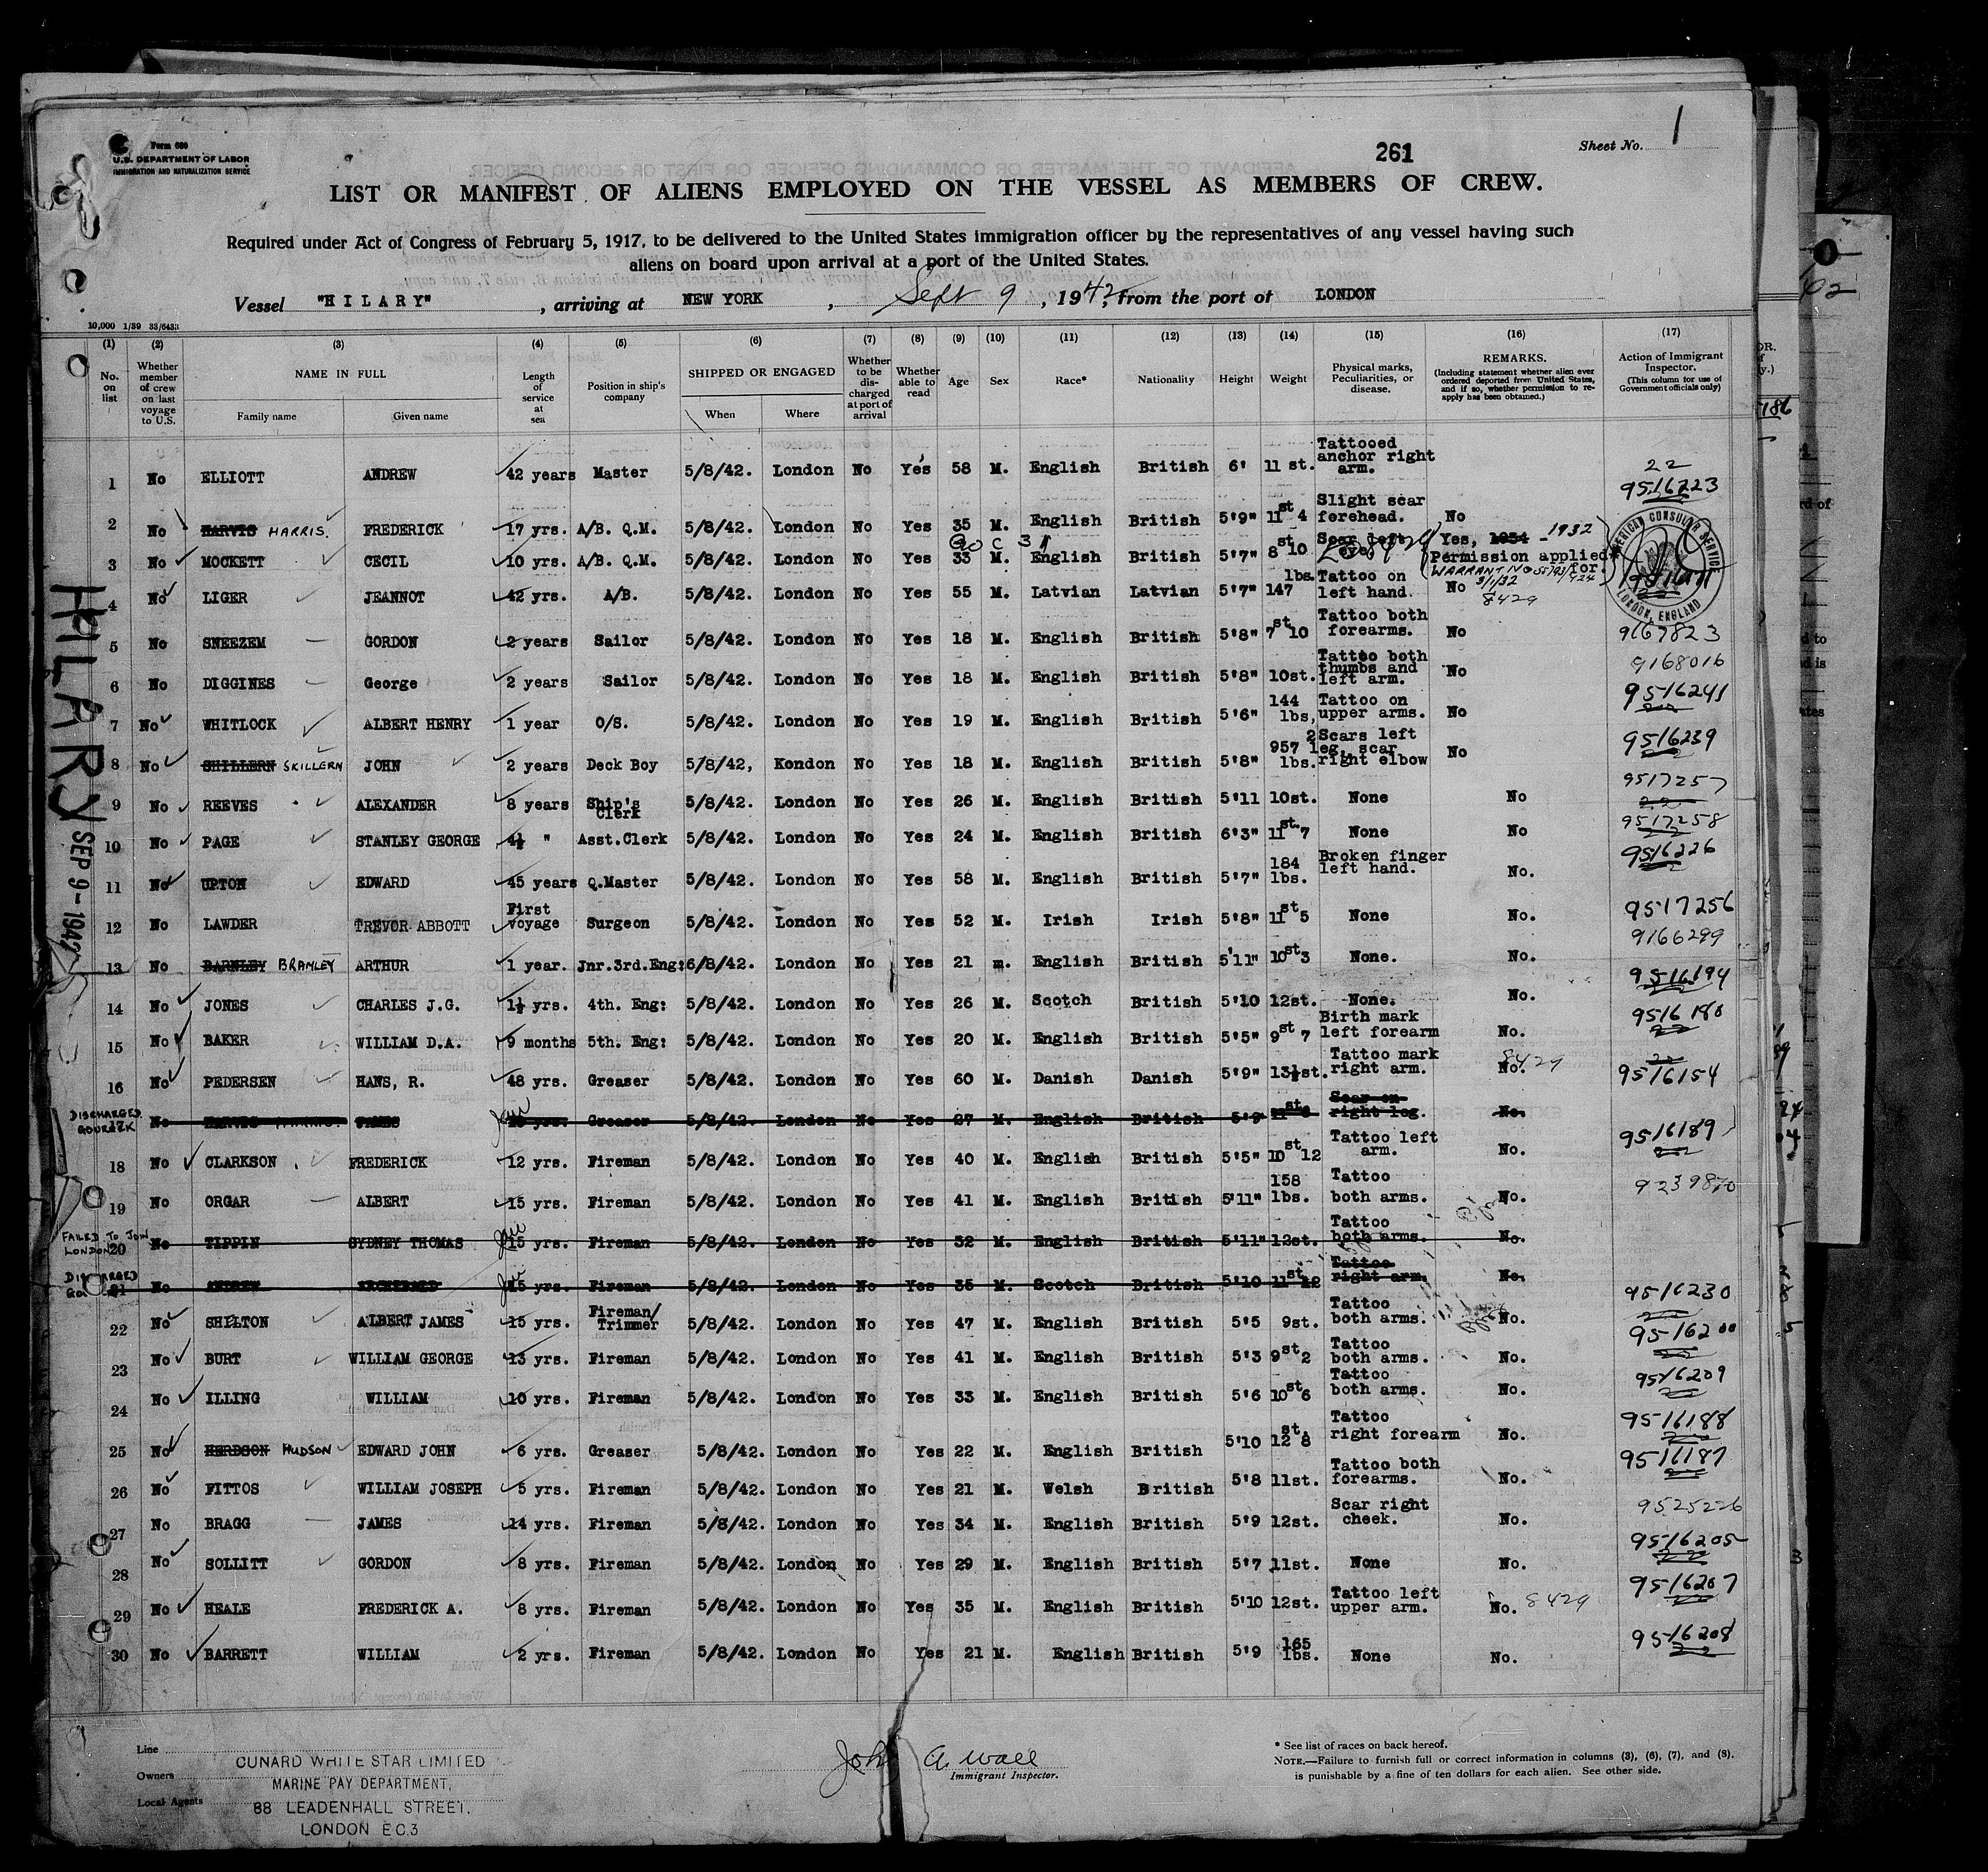 Form 680
U.S. DEPARTMENT OF LABOR
IMMIGRATION AND NATURALIZATION SERVICE
261
Sheet No. 1
LIST OR MANIFEST OF ALIENS EMPLOYED ON THE VESSEL AS MEMBERS OF CREW.
Required under Act of Congress of February 5, 1917, to be delivered to the United States immigration officer by the representatives of any vessel having such
aliens on board upon arrival at a port of the United States.
Vessel "HILARY", arriving at NEW YORK, Sept 9, 1942, from the port of LONDON
10,000 1/39 33/6433
(1) (2) (3) (4) (5) (6) (7) (8) (9) (10) (11) (12) (13) (14) (15) (16) (17)
No. on list Whether member of crew on last voyage to U.S. NAME IN FULL Family name Given name Length of service at sea Position in ship's company SHIPPED OR ENGAGED When Where Whether to be discharged at port of arrival Whether able to read Age Sex Race* Nationality Height Weight Physical marks, Peculiarities, or disease. REMARKS. (Including statement whether alien ever ordered deported from United States, and if so, whether permission to reapply has been obtained.) Action of Immigrant Inspector. (This column for use of Government officials only)
1 No ELLIOTT ANDREW 42 years Master 5/8/42. London No Yes 58 M. English British 6' 11 st. Tattooed anchor right arm. 22 9516223
2 No HARVIS HARRIS. FREDERICK 17 yrs. A/B. Q.M. 5/8/42. London No Yes 35 M. English British 5'9" 11st 4 Slight scar forehead. No
3 No MOCKETT CECIL 10 yrs. A/B. Q.M. 5/8/42. London No Yes 33 M. English British 5'7" 8st 10 Scar left eye Yes, 1934 - 1932 Permission applied for. WARRANT No 55793/424 3/1/32
AMERICAN CONSULAR SERVICE LONDON, ENGLAND
4 No LIGER JEANNOT 42 yrs. A/B. 5/8/42. London No Yes 55 M. Latvian Latvian 5'7" 147 lbs. Tattoo on left hand. No 8429
5 No SNEEZEM GORDON 2 years Sailor 5/8/42. London No Yes 18 M. English British 5'8" 7st 10 Tattoo both forearms. No 9167823
6 No DIGGINES George 2 years Sailor 5/8/42. London No Yes 18 M. English British 5'8" 10st. Tattoo both thumbs and left arm. No 9168016
7 No WHITLOCK ALBERT HENRY 1 year O/S. 5/8/42. London No Yes 19 M. English British 5'6" 144 lbs, Tattoo on upper arms. No 9516241
8 No SHILLERN SKILLERN JOHN 2 years Deck Boy 5/8/42, Kondon No Yes 18 M. English British 5'8" 957 lbs. 2Scars left leg, scar right elbow No 9516239
9 No REEVES ALEXANDER 8 years Ship's Clerk 5/8/42. London No Yes 26 M. English British 5'11 10st. None No 9517257
10 No PAGE STANLEY GEORGE 4½ " Asst.Clerk 5/8/42. London No Yes 24 M. English British 6'3" 11st.7 None No 9517258
11 No UPTON EDWARD 45 years Q.Master 5/8/42. London No Yes 58 M. English British 5'7" 184 lbs. Broken finger left hand. No. 9516226
12 No LAWDER TREVOR ABBOTT First voyage Surgeon 5/8/42. London No Yes 52 M. Irish Irish 5'8" 11st 5 None No. 9517256
13 No BARNLEY BRAMLEY ARTHUR 1 year. Jnr.3rd.Eng: 6/8/42. London No Yes 21 m. English British 5'11" 10st3 None. No. 9166299
14 No JONES CHARLES J.G. 1½ yrs. 4th. Eng: 5/8/42. London No Yes 26 M. Scotch British 5'10 12st. None. No. 9516194
15 No BAKER WILLIAM D.A. 9 months 5th. Eng: 5/8/42. London No Yes 20 M. English British 5'5" 9st 7 Birth mark left forearm No. 9516180
16 No PEDERSEN HANS, R. 48 yrs. Greaser 5/8/42. London No Yes 60 M. Danish Danish 5'9" 13½st. Tattoo mark right arm. No. 8429 9516154
DISCHARGED GOUROCK No HARRIS. JAMES yrs. Greaser 5/8/42. London No Yes 27 M. English British 5'9 Scar on right leg. No.
18 No CLARKSON FREDERICK 12 yrs. Fireman 5/8/42. London No Yes 40 M. English British 5'5" 10st 12 Tattoo left arm. No. 9516189
19 No ORGAR ALBERT 15 yrs. Fireman 5/8/42. London No Yes 41 M. English British 5'11" 158 lbs. Tattoo both arms. No. 9239870
FAILED TO JOIN LONDON 20 No TIPPIN SYDNEY THOMAS 15 yrs. Fireman 5/8/42. London No Yes 32 M. English British 5'11" 12st. Tattoo both arms. No.
DISCHARGED 21 No ANDREW ARCHIBALD 15 yrs. Fireman 5/8/42. London No Yes 35 M. Scotch British 5'10 11st 12 Tattoo right arm. No.
22 No SHILTON ALBERT JAMES 15 yrs. Fireman/ Trimmer 5/8/42. London No Yes 47 M. English British 5'5 9st. Tattoo both arms. No. 9516230
23 No BURT WILLIAM GEORGE 13 yrs. Fireman 5/8/42. London No Yes 41 M. English British 5'3 9st 2 Tattoo both arms. No. 9516200
24 No ILLING WILLIAM 10 yrs. Fireman 5/8/42. London No Yes 33 M. English British 5'6 10st6 Tattoo both arms. No. 9516209
25 No HERDSON HUDSON EDWARD JOHN 6 yrs. Greaser 5/8/42. London No Yes 22 M. English British 5'10 12st.8 Tattoo right forearm No. 9516188
26 No FITTOS WILLIAM JOSEPH 5 yrs. Fireman 5/8/42. London No Yes 21 M. Welsh British 5'8 11st. Tattoo both forearms. No. 9516187
27 No BRAGG JAMES 14 yrs. Fireman 5/8/42. London No Yes 34 M. English British 5'9 12st. Scar right cheek. No. 9525226
28 No SOLLITT GORDON 8 yrs. Fireman 5/8/42. London No Yes 29 M. English British 5'7 11st. None No. 9516205
29 No HEALE FREDERICK A. 8 yrs. Fireman 5/8/42. London No Yes 35 M. English British 5'10 12st. Tattoo left upper arm. No. 8429 9516207
30 No BARRETT WILLIAM 2 yrs. Fireman 5/8/42. London No Yes 21 M. English British 5'9 165 lbs. None No. 9516208
HILARY SEP 9-1942
Line
Owners
Local Agents
CUNARD WHITE STAR LIMITED
MARINE PAY DEPARTMENT,
88 LEADENHALL STREET,
LONDON E.C.3
John A. Wall
Immigrant Inspector.
* See list of races on back hereof.
NOTE.—Failure to furnish full or correct information in columns (3), (6), (7), and (8),
is punishable by a fine of ten dollars for each alien. See other side.